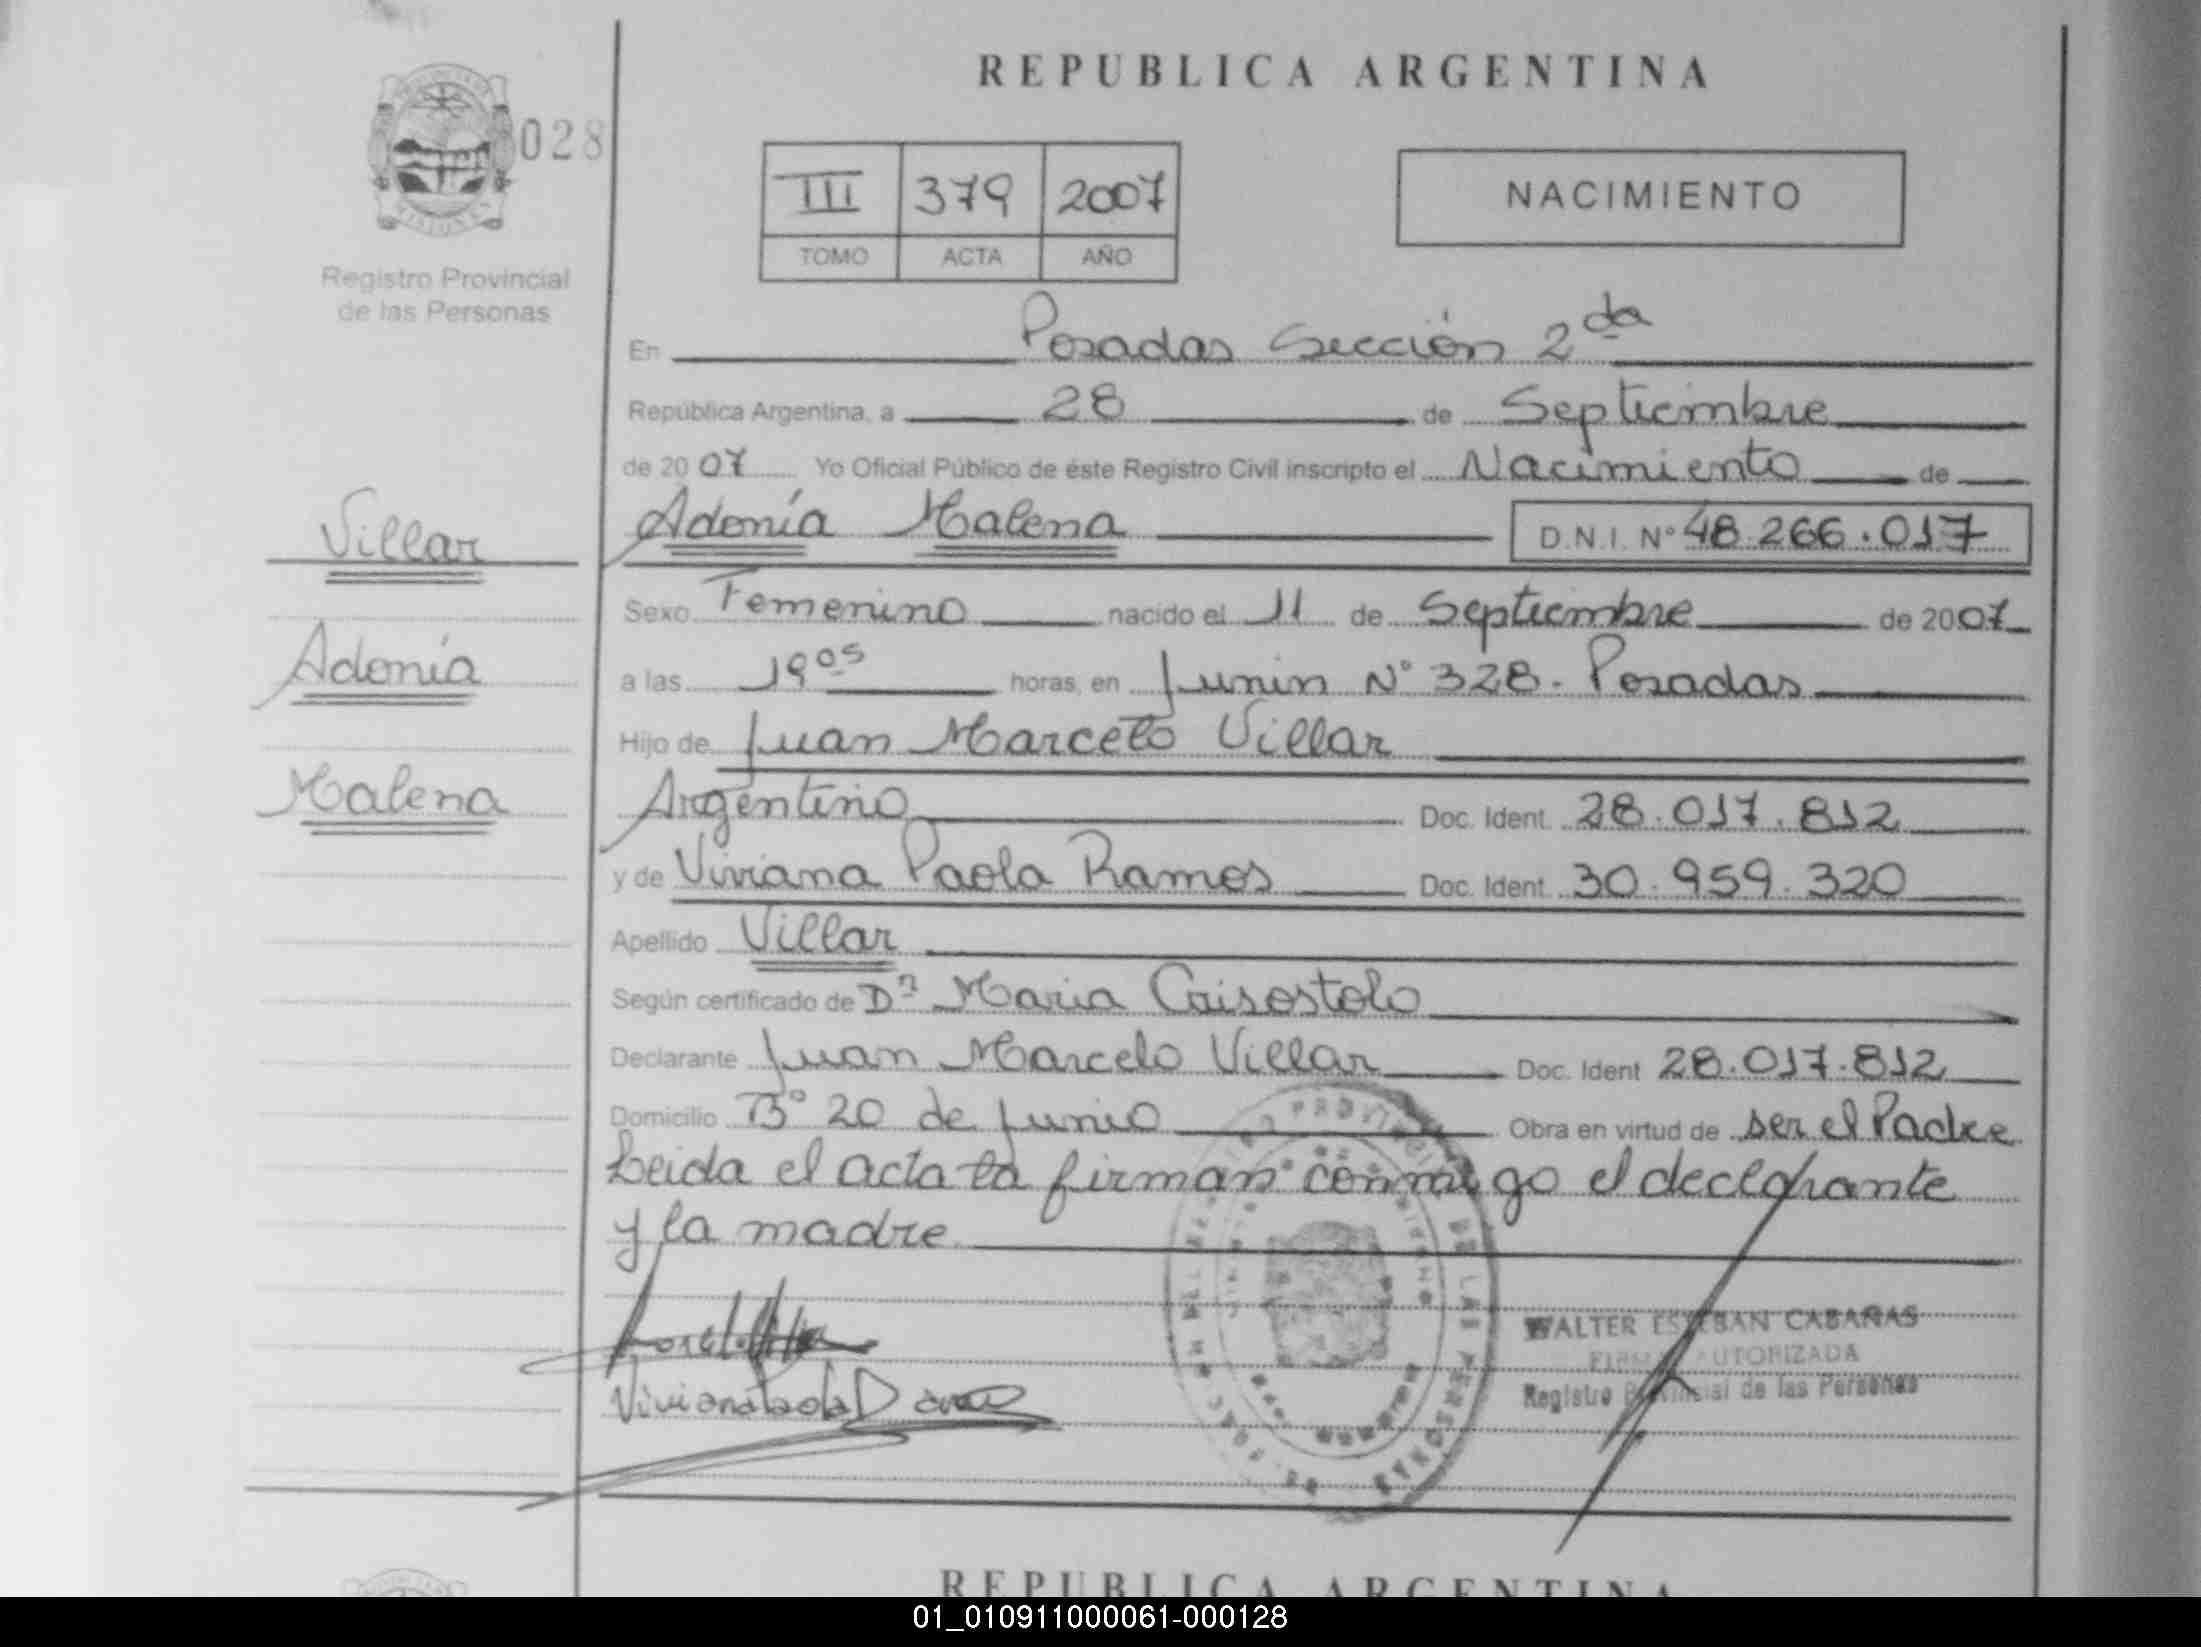 REPUBLICA ARGENTINA
028
III 379 2007
TOMO ACTA AÑO
NACIMIENTO
Registro Provincial
de las Personas
En Posadas Sección 2da
República Argentina, a 28 de Septiembre
de 2007 Yo Oficial Público de éste Registro Civil inscripto el Nacimiento de
Villar
Adonía Malena D.N.I. Nº 48.266.017
Sexo Femenino nacido el 11 de Septiembre de 2007
Adonía
a las 19 05 horas, en Junin Nº 328. Posadas
Hijo de Juan Marcelo Villar
Malena
Argentino Doc. Ident. 28.017.812
y de Viviana Paola Ramos Doc. Ident. 30.959.320
Apellido Villar
Según certificado de Dra Maria Crisostolo
Declarante Juan Marcelo Villar Doc. Ident 28.017.812
Domicilio Bº 20 de Junio Obra en virtud de ser el Padre
Leida el acta la firman conmigo el declarante
y la madre
WALTER ESTEBAN CABAÑAS
FIRMA AUTORIZADA
Registro Provincial de las Personas
Viviana Paola
REPUBLICA ARGENTINA
01_010911000061-000128